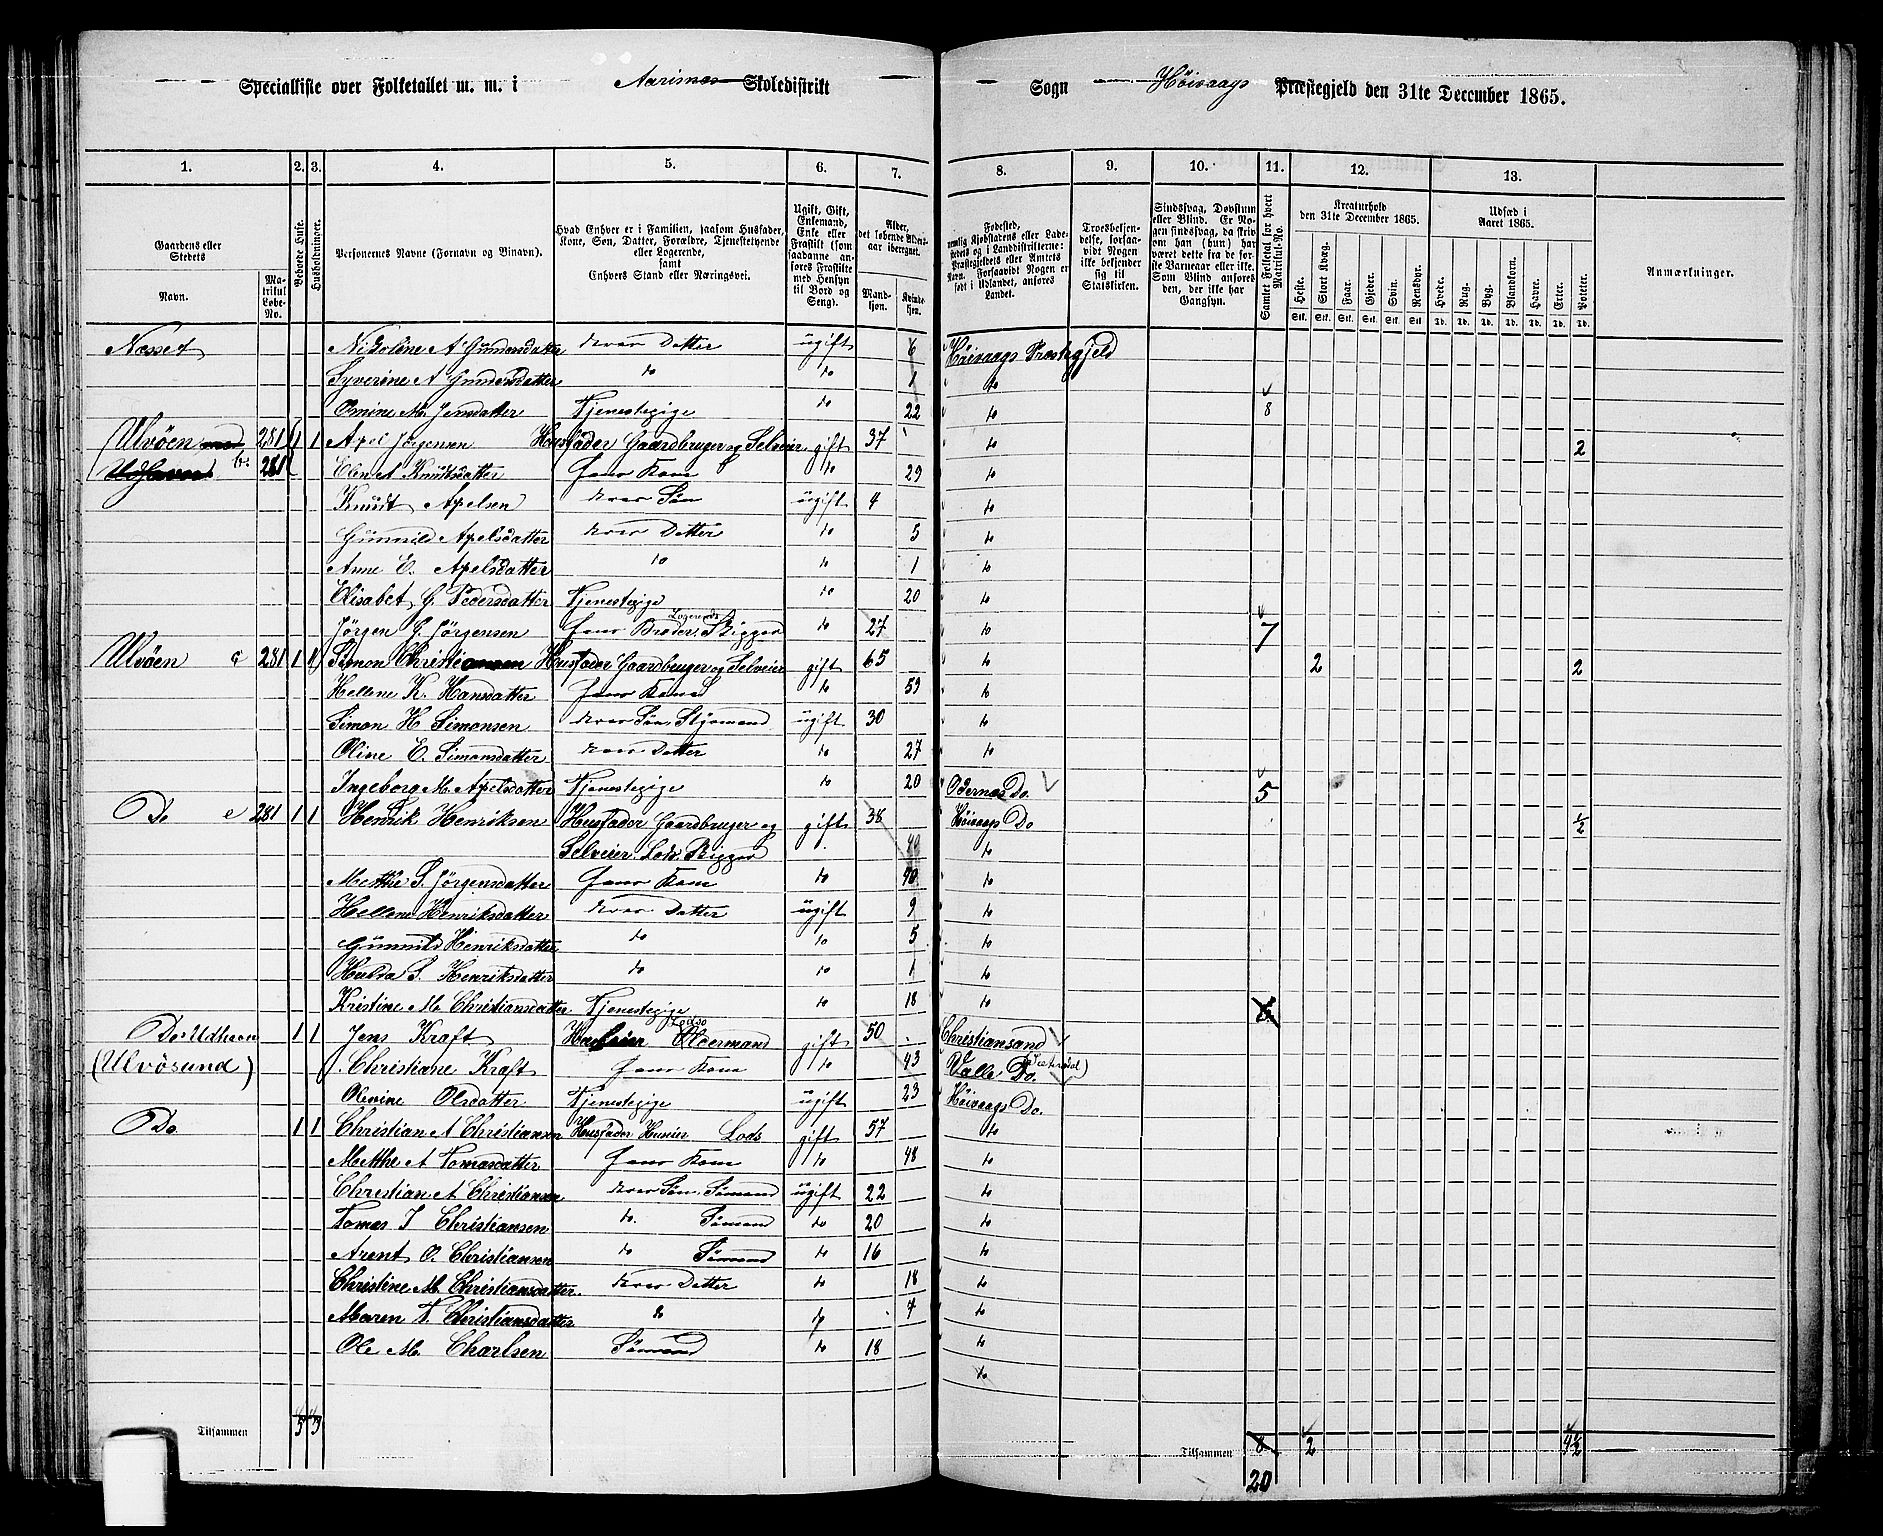 Specialliste over Folketallet m. m. i Aarisnæs Skoledistrikt
Sogn Höivaags Præstegjeld den 31te December 1865.
1. 2. 3. 4. 5. 6. 7. 8. 9. 10. 11. 12. 13.
Gaardens eller Stedets
Navn.
Matrikul Løbe-No.
Beboede Huse.
Husholdninger.
Personernes Navne (Fornavn og Binavn).
Hvad Enhver er i Familien, saasom Husfader, Kone, Søn, Datter, Forældre, Tjenestetyende eller Logerende, samt Enhvers Stand eller Næringsvei.
Ugift, Gift, Enkemand, Enke eller Fraskilt (som saadanne anføres Fraskilte med Hensyn til Bord og Seng).
Alder, det løbende Aldersaar iberegnet.
Mandkjøn.
Kvindekjøn.
Fødested,
Troesbekjendelse, forsaavidt Nogen ikke bekjender sig til Statskirken.
Sindssvag, Døvstum eller Blind.
Samlet Folketal for hvert Matrikul-No.
Kreaturhold den 31te December 1865.
Heste. Stort Kvæg. Faar. Gjeder. Svin. Rensdyr.
Udsæd i Aaret 1865.
Hvede. Rug. Byg. Blandkorn. Havre. Erter. Poteter.
Anmærkninger.
Næsset Nikoline A Gundersdatter deres Datter ugift 6 Höivaags Præstegjeld
Syverine A Gundersdatter do do 1 do
Omine M. Jensdatter Tjenestepige do 22 do 8
Ulvöen 281 1 1 Apel Jörgensen Husfader Gaardbruger og Selveier gift 37 do 2
281 Elen A Knudsdatter hans Kone do 29 do
Knudt Apelsen deres Søn ugift 4 do
Gunnild Apelsdatter deres Datter do 5 do
Anne E. Apelsdatter do do 1 do
Elisabet G Pedersdatter Tjenestepige do 20 do
Jörgen G. Jörgensen hans Broder, Logerende Skipper do 27 do 7
Ulvöen c 281 1 1 Simon Christiansen Husfader Gaardbruger og Selveier gift 65 do 2 2
Hellene K. Hansdatter hans Kone do 59 do
Simon H Simonsen deres Søn Styrmand ugift 30 do
Oline E. Simonsdatter deres Datter do 27 do
Ingeborg M. Apelsdatter Tjenestepige do 20 Odernes Do. 5
Do e 281 1 1 Henrik Henriksen Husfader Gaardbruger og gift 38 Höivaags Do ½
Selveier Lods. Skipper 40 do
Methe S. Jörgensdatter hans Kone do 40 do
Hellene Henriksdatter deres Datter ugift 9 do
Gunnild Henriksdatter do do 5 do
Hulda S. Henriksdatter do do 1 do
Kristine M. Christiansdatter Tjenestepige do 18 do
Do Udhavn 1 1 Jens Kraft Huseier Lods Oldermand gift 50 Christiansand
(Ulvösund) Christiane Kraft hans Kone do 43 Valle Do.
Olevine Olsdatter Tjenestepige ugift 23 Höivaags Do.
Do 1 1 Christian A Christiansen Husfader Huseier Lods gift 57 do
Methe A Tomasdatter hans Kone do 48 do
Christian A Christiansen deres Søn, Sømand ugift 22 do
Tomas J Christiansen do. Sømand do 20 do
Arent O. Christiansen do Sømand do 16 do
Christine M. Christiansdatter deres Datter do 18 do
Maren T. Christiansdatter do do 7 do
Ole M. Charlsen Sømand do 18 do
do
Tilsammen 5 5
Tilsammen 8 2 4½
20